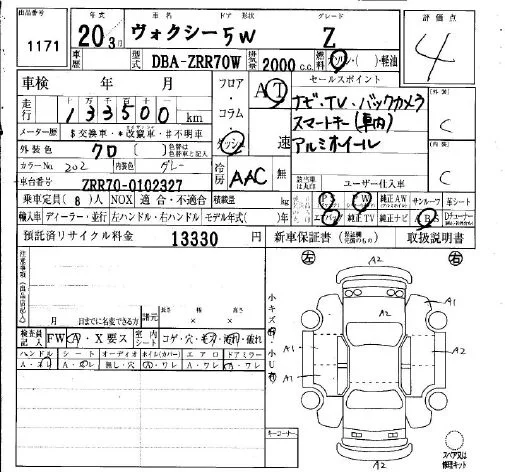 出品番号 年式 車名 ドア 形状 グレード 評価点
1171 20 3月 ヴォクシー 5W Z 4
車歴 型式 DBA-ZRR70W 排気量 2000 c.c. 燃料 ガソリン・( )・軽油
車検 年 月 フロア・コラム・ダッシュ AT セールスポイント 外装
走行 十万千百十一 133500 km ナビ・TV・バックカメラ C
メーター歴 $交換車・*改竄車・#不明車 スマートキー(車内) 内装
外装色 クロ 色替は色替車と記入 速 アルミホイール C
カラーNo. 202 内装色 グレー 冷房 AAC 無
車台番号 ZRR70-0102327 ユーザー仕入車
乗車定員 (8) 人 NOX 適合・不適合 積載量 kg PS PW 純正AW サンルーフ 革シート
輸入車 ディーラー・並行 左ハンドル・右ハンドル モデル年式( )年 エアバッグ 純正TV 純正ナビ ABS
預託済リサイクル料金 13330 円 新車保証書 取扱説明書
注意事項
左 A2 右
A2 A1
A1 A2
A1
A2
小キズ有 小凹有
月 日までに名変できる方 諸元 長さ × 幅 × 高さ
検査員記入 FW A・X要ス 室内シート コゲ・穴・キレ・汚れ・スレ
ハンドル シート オーディオ ホイル(カバー) エアロ ドアミラー
キーコーナー
スペア又は修理キット